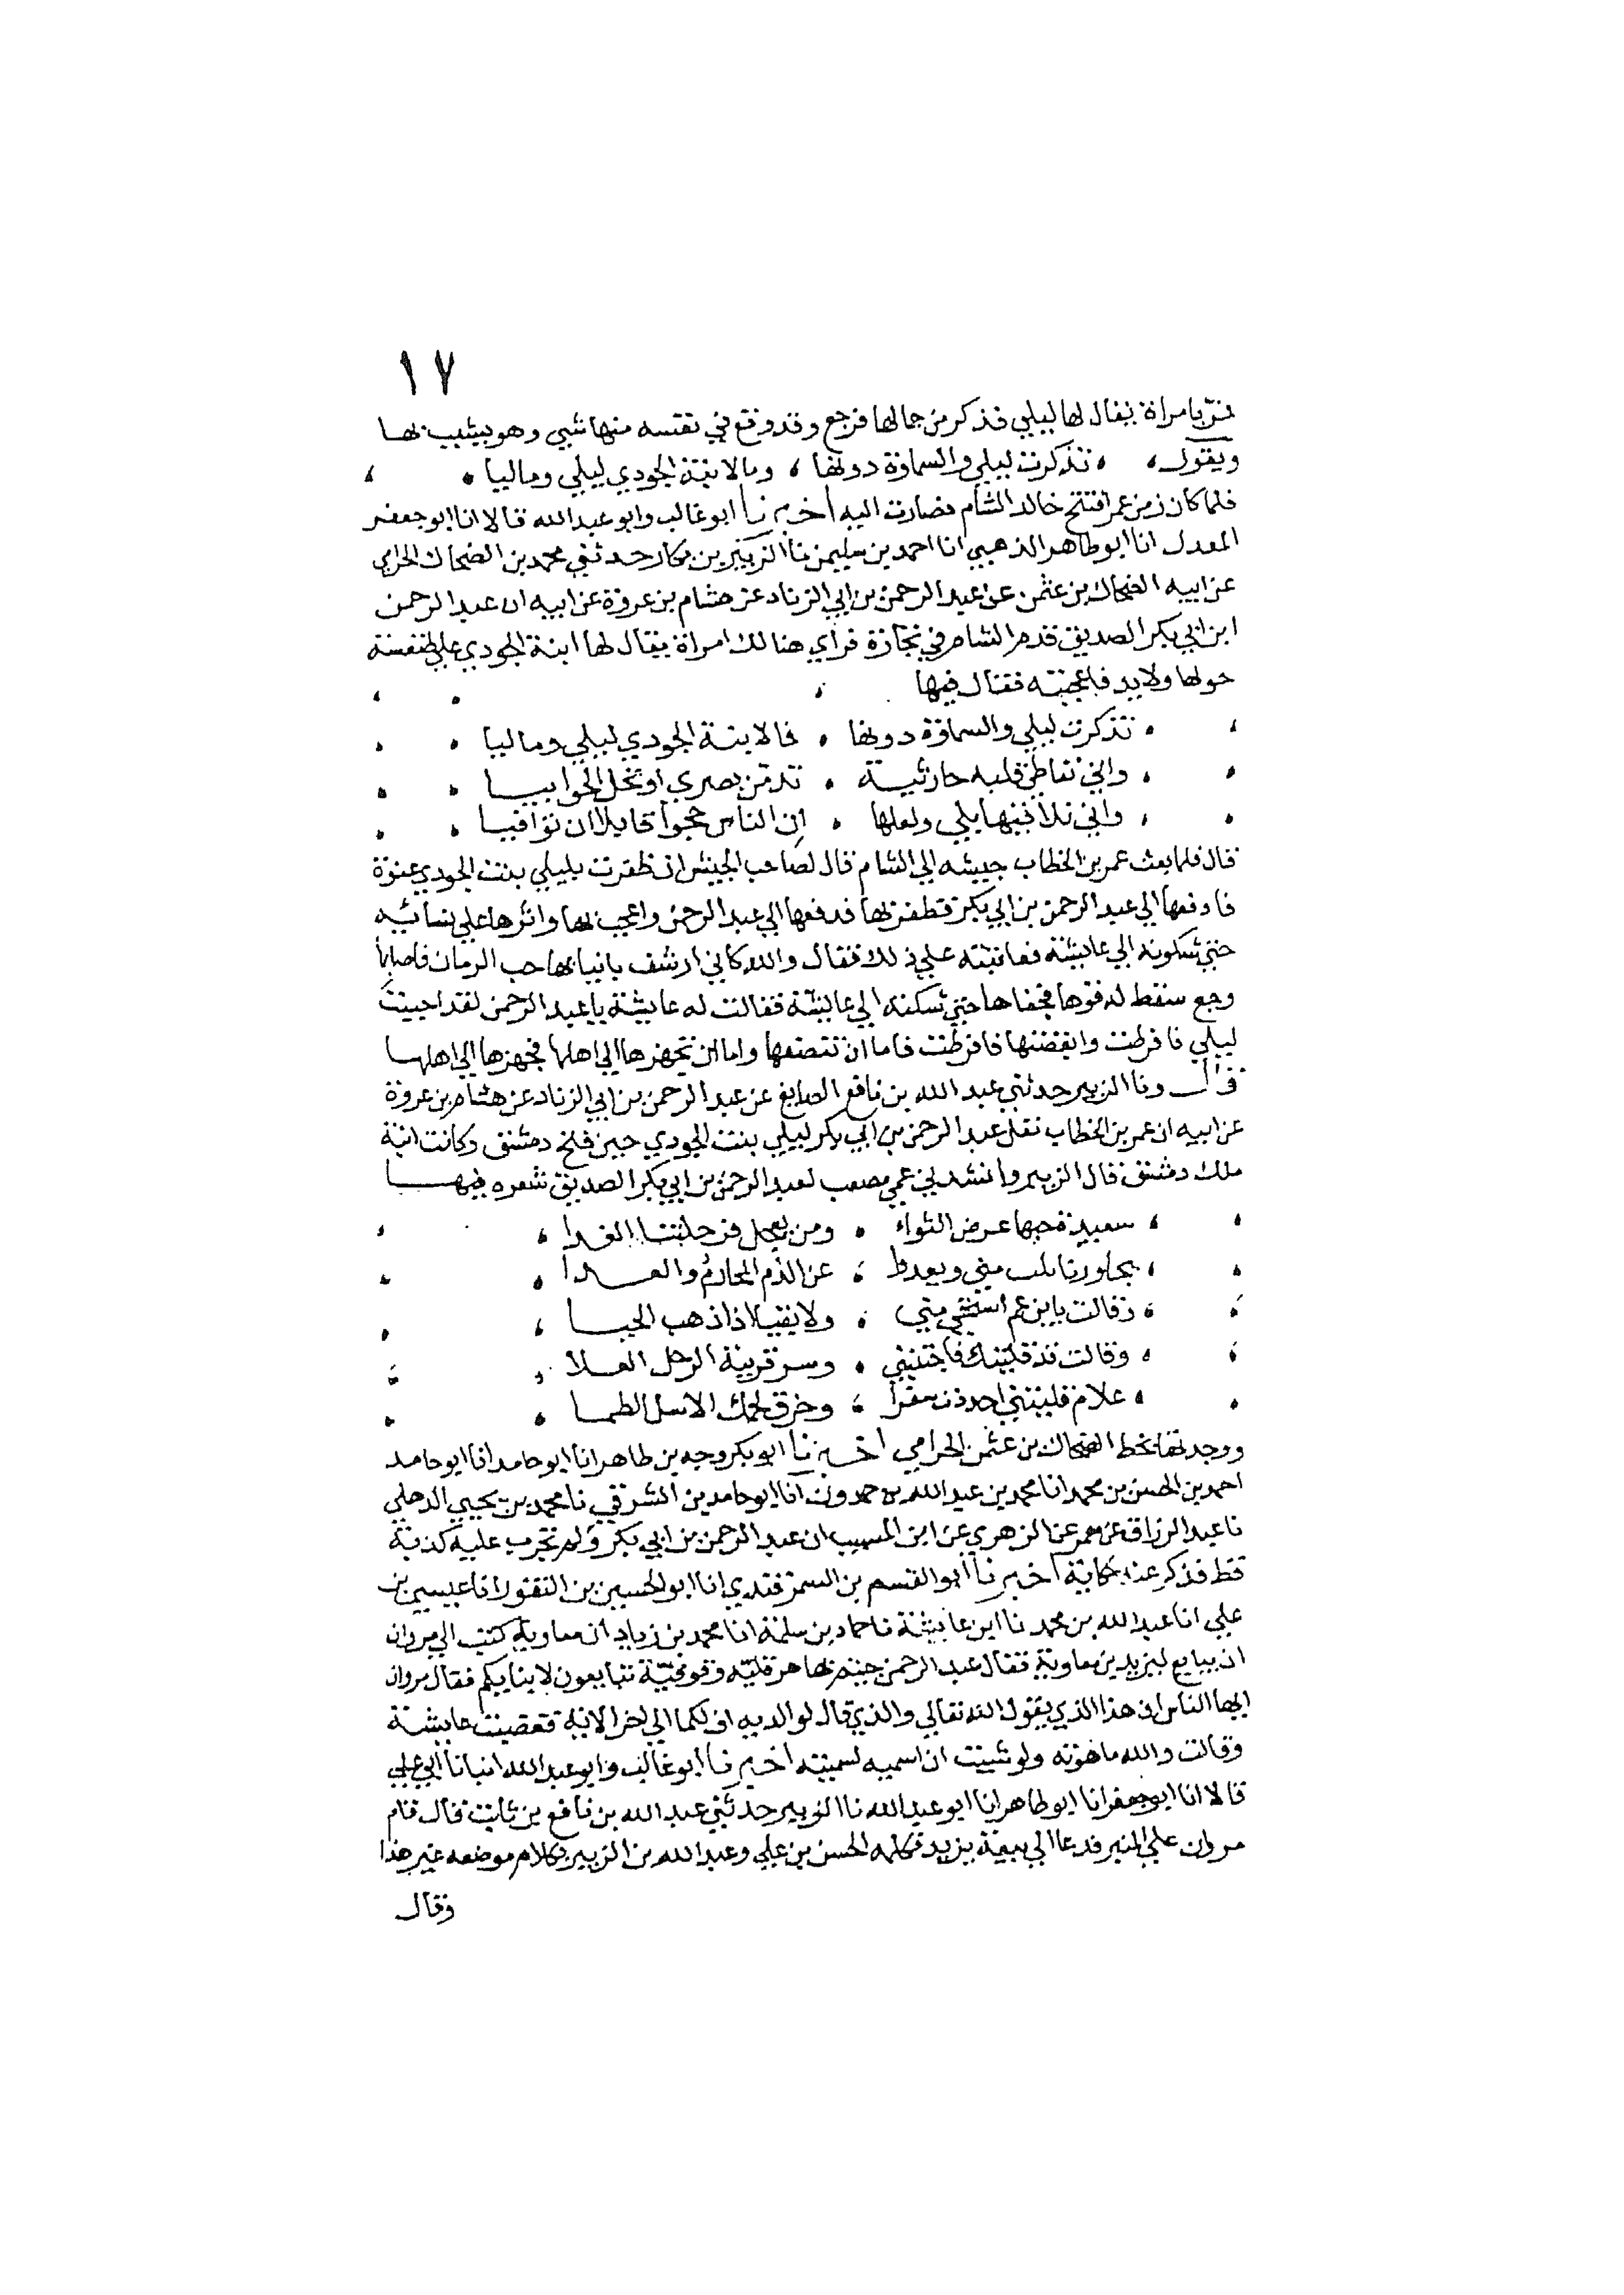 ١٧
فمرّ بامراة يقال لها ليلي فذكر من جمالها فرجع وقد وقع في نفسه منها شي وهو يشبب بها
ويقول ، تذكرت ليلي والسماوة دونها ، وما لابنة الجودي ليلي وماليا
فلما كان زمن عمر افتتح خالد الشام فصارت اليه اخبرنا ابو غالب وابو عبد الله قالا انا ابو جعفر
المعدل انا ابو طاهر الذهبي انا احمد بن سليمن نا الزبير بن بكار حدثني محمد بن الضحاك الحزامي
عن ابيه الضحاك بن عثمن عن عبد الرحمن بن ابي الزناد عن هشام بن عروة عن ابيه ان عبد الرحمن
ابن ابي بكر الصديق قدم الشام في تجارة فراي هنالك امراة يقال لها ابنة الجودي علي طنفسة
حولها ولايد فاعجبته فقال فيها
تذكرت ليلي والسماوة دونها ، فما لابنة الجودي ليلي وماليا
واني تعاطي قلبه حارثية ، تدمن بصري او تحل الجوابيا
واني تلاقيها بلي ولعلها ، ان الناس حجوا قابلا ان توافيا
قال فلما بعث عمر بن الخطاب جيشه الي الشام قال لصاحب الجيش ان ظفرت بليلي بنت الجودي عنوة
فادفعها الي عبد الرحمن بن ابي بكر فظفر بها فدفعها الي عبد الرحمن واعجب بها واثرها علي نسائيه
حتي شكونه الي عايشة فعاتبته علي ذلك فقال والله كاني ارشف بانيابها حب الرمان فاصابها
وجع سقط له فوها فجفاها حتي شكته الي عايشة فقالت له عايشة يا عبد الرحمن لقد احببت
ليلي فافرطت وابغضتها فافرطت فاما ان تنصفها واما ان تجهزها الي اهلها فجهزها الي اهلها
قال ونا الزبير حدثني عبد الله بن نافع الصايغ عن عبد الرحمن بن ابي الزناد عن هشام بن عروة
عن ابيه ان عمر بن الخطاب نفل عبد الرحمن بن ابي بكر ليلي بنت الجودي حين فتح دمشق وكانت ابنة
ملك دمشق قال الزبير وانشدني عمي مصعب لعبد الرحمن بن ابي بكر الصديق شعره فيها
حبها عرض الثواء ، ومن
مني ، عن الذم المحارم
وقالت يا بن عم استحي مني ، ولا بقيا اذا ذهب الحيا
وقالت قد قليتك فاجتنبني ، وسر قرينة الرجل
علام قليتني احدذت سفرا ، وخرق لحمك الاسل الظما
ووجدتها بخط الضحاك بن عثمن الحزامي اخبرنا ابو بكر وجيه بن طاهر انا ابو حامد انا ابو حامد
احمد بن الحسن بن محمد انا محمد بن عبد الله بن حمدون انا ابو حامد بن الشرقي نا محمد بن يحيي الذهلي
نا عبد الرزاق عن معمر عن الزهري عن ابن المسيب ان عبد الرحمن بن ابي بكر ولم تجرب عليه كذبة
قط فذكر عنه حكاية اخبرنا ابو القسم بن السمرقندي انا ابو الحسين بن النقور انا عيسي بن
علي انا عبد الله بن محمد نا ابن عايشة نا حماد بن سلمة انا محمد بن زياد ان معاوية كتب الي مروان
ان يبايع ليزيد بن معاوية فقال عبد الرحمن جيتم بها هرقلية وقوقية تبايعون لابنايكم فقال مروان
ايها الناس ان هذا الذي يقول الله تعالي والذي قال لوالديه اف لكما الي اخر الاية فغضبت عايشة
وقالت والله ما هو به ولو شيت ان اسميه لسميته اخبرنا ابو غالب وابو عبد الله انبانا ابي علي
قالا انا ابو جعفر انا ابو طاهر انا ابو عبد الله نا الزبير حدثني عبد الله بن نافع بن ثابت قال قام
مروان علي المنبر فدعا الي بيعة يزيد فكلمه الحسن بن علي وعبد الله بن الزبير بكلام موضعه غير هذا
وقال